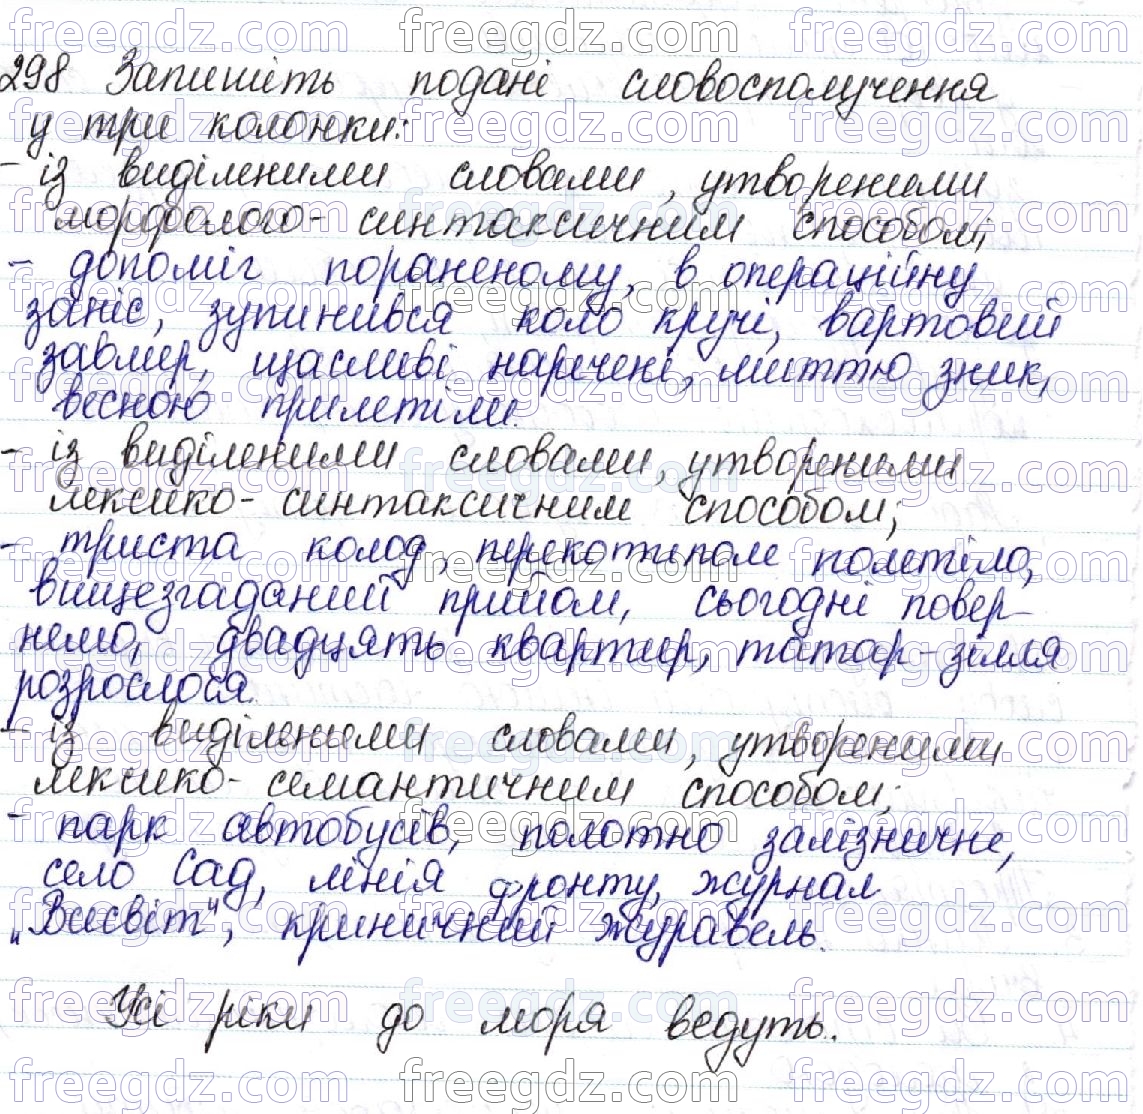 298 Запишіть подані словосполучення
у три колонки:
- із виділеними словами, утвореними
морфолого-синтаксичним способом;
- допоміг пораненому, в операційну
заніс, зупинився коло кручі, вартовий
завмер, щасливі наречені, миттю зник,
весною прилетіли.
- із виділеними словами, утвореними
лексико-синтаксичним способом;
- триста колод, перекотиполе полетіло,
вищезгаданий прийом, сьогодні повер-
немо, двадцять квартир, татар-зілля
розрослося.
- із виділеними словами, утвореними
лексико-семантичним способом;
- парк автобусів, полотно залізничне,
село Сад, лінія фронту, журнал
„Всесвіт", криничний журавель.
Усі ріки до моря ведуть.
freegdz.com